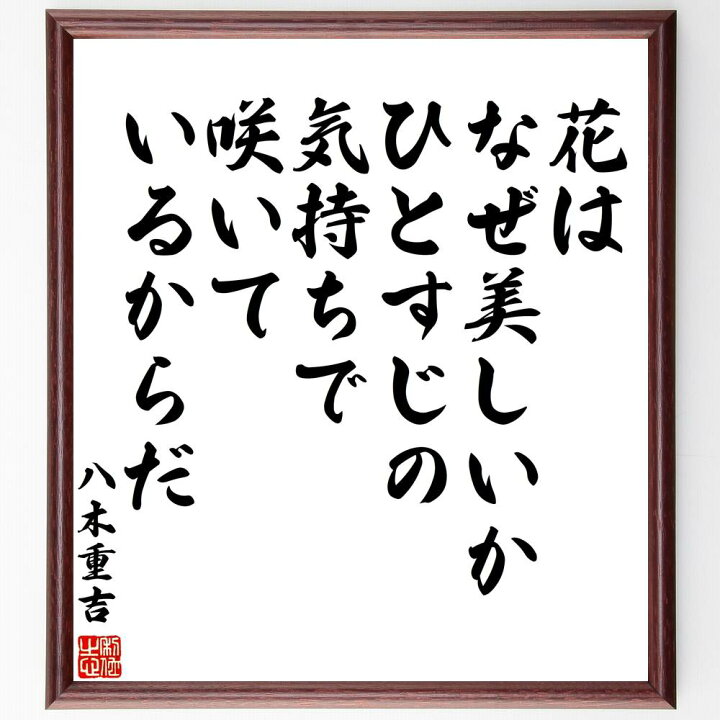 花は
なぜ美しいか
ひとすじの
気持ちで
咲いて
いるからだ
八木重吉